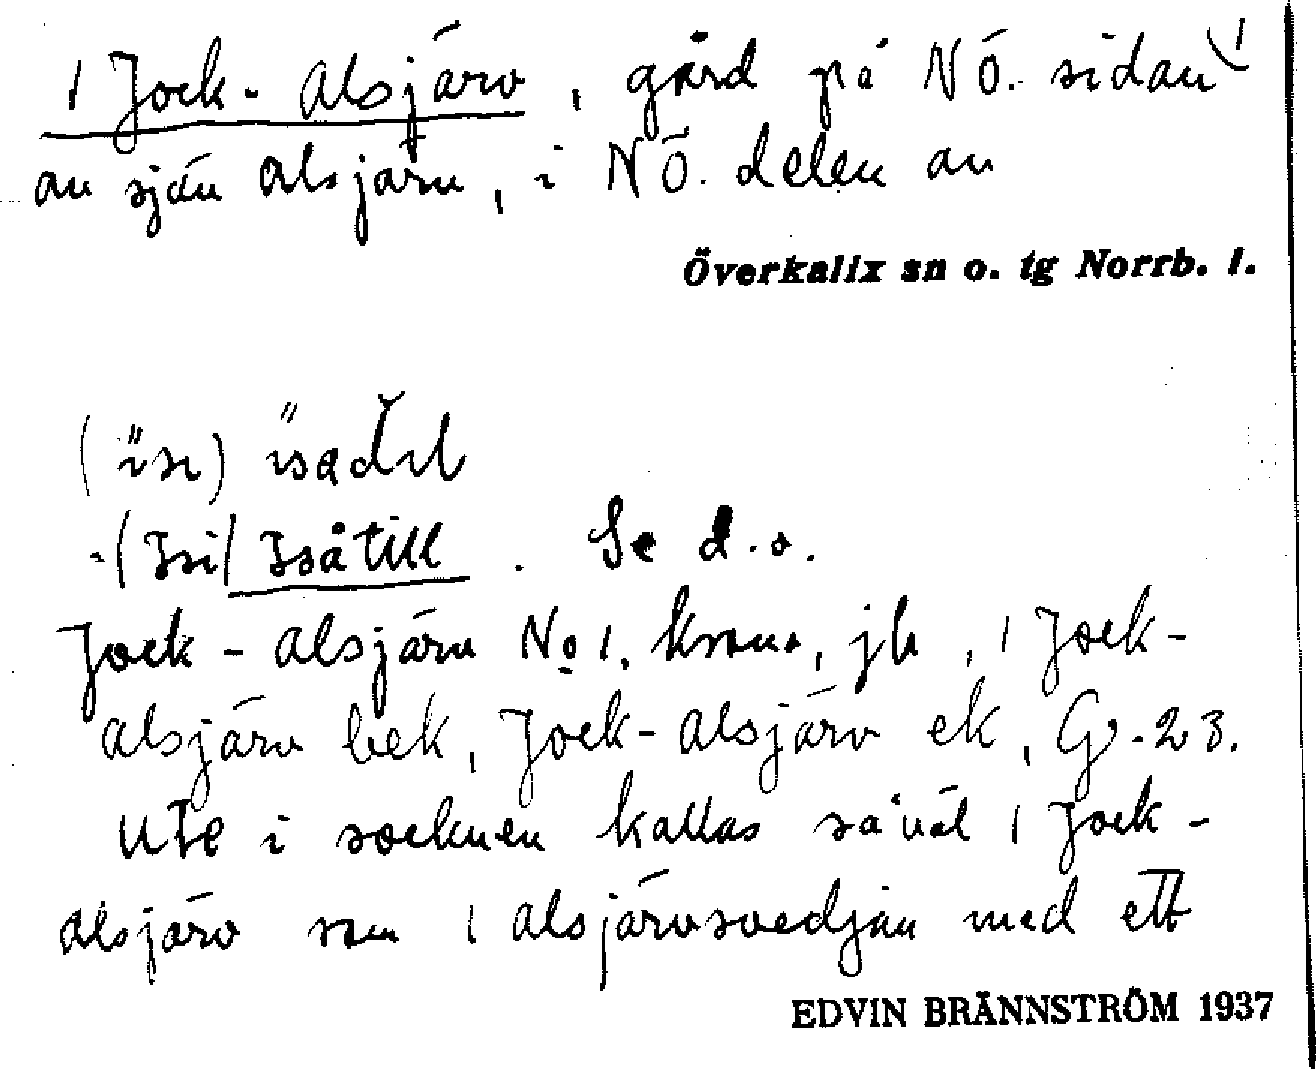 1 Jock-Alsjärv, gård på NÖ. sidan 1)
av sjön Alsjärv, i NÖ. delen av
Överkalix sn o. tg Norrb. l.
-(Isi) Isåtill. Se d.o.
Jock-Alsjärv No 1, krono, jb, 1 Jock-
alsjärv bek, Jock-Alsjärv ek, G-23.
Ute i socknen kallas såväl 1 Jock-
alsjärv som 1 Alsjärvsvedjan med ett
EDVIN BRÄNNSTRÖM 1937